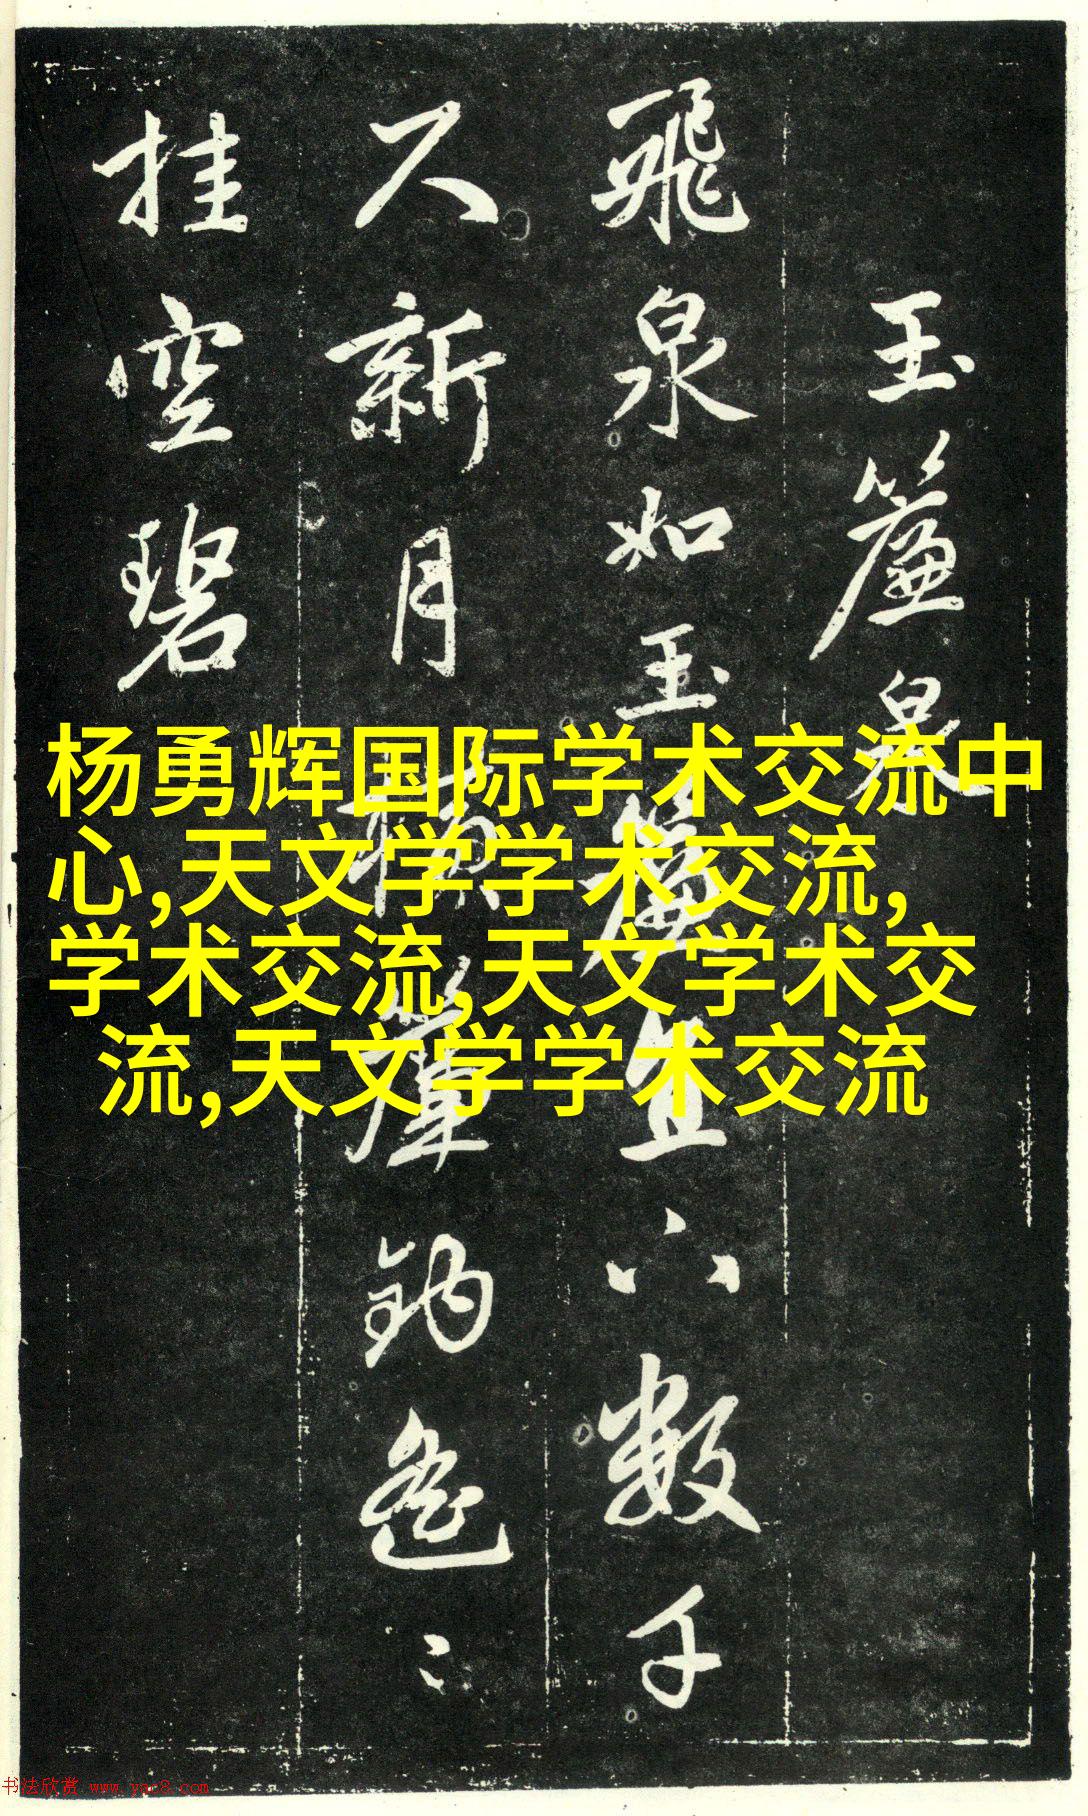 玉簾泉
飛泉如玉簾直下數千
尺新月橫簾鈎遙〻
挂空碧
杨勇辉国际学术交流中
心,天文学学术交流,
学术交流,天文学术交
流,天文学学术交流
书法欣赏 www.yac8.com